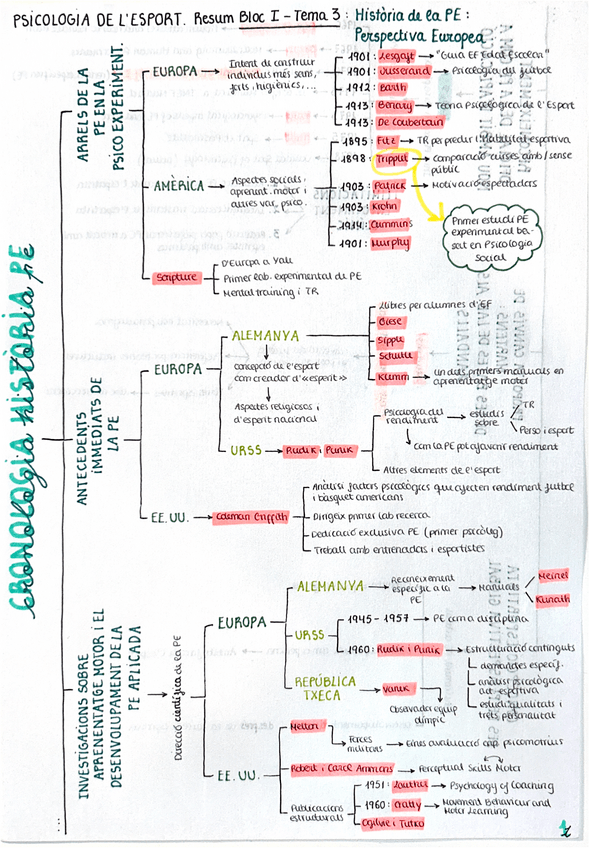 PSICOLOGIA DE L'ESPORT. Resum Bloc I - Tema 3: Història de la PE:
Perspectiva Europea
CRONOLOGIA HISTÒRIA PE
cronologia història pe
ARRELS DE LA
PE EN LA
PSICO EXPERIMENT.
EUROPA
Intent de construir
individus més sans,
forts, higiènics,...
1901: Lesgaft → "Guia EF Educa Escolean"
1901: Jusserand → Psicologia du futbol
1912: Barth
1913: Benary → Teoria Psicologica de l'Esport
1913: De Coubertain
AMÈRICA
Aspectes socials,
aprenent. motor i
altres var. psico.
1895: Fitz → TR per predir l'habilitat esportiva
1898: Tripplit → comparació curses amb/sense
públic
1903: Patrick → Motivació espectadors
1903: Krohn
1914: Cummins
1901: Murphy
Primer estudi PE
experimental ba-
sat en Psicologia
Social
Scripture
D'Europa a Yale
Primer lab. experimental de PE
Mental training i TR
ANTECEDENTS
IMMEDIATS DE
LA PE
EUROPA
ALEMANYA
concepció de l'esport
com creador d'«esperit»
Aspectes religiosos i
d'esperit nacional
Llibres per alumnes d'EF
Giese
Sippel
Schulte
Klemm → un dels primers manuals en
aprenentatge motor
URSS → Rudik i Punik
Psicologia del
rendiment → estudis
sobre
TR
Perso i esport
com la PE pot afavorir rendiment
Altres elements de l'esport
EE.UU. → Coleman Griffith
Anàlisi factors psicològics que afecten rendiment futbol
i bàsquet americans
Dirigeix primer lab recerca
Dedicació exclusiva PE (primer psicòleg)
Treball amb entrenadors i esportistes
INVESTIGACIONS SOBRE
APRENENTATGE MOTOR I EL
DESENVOLUPAMENT DE LA
PE APLICADA
Direcció científica de la PE
EUROPA
ALEMANYA → Reconeixement
específic a la
PE → Manuals
Meinel
Kunath
URSS
1945 - 1957 → PE com a disciplina
1960: Rudik i Punik → Estructuració continguts
demandes específ.
anàlisi psicològica
act. esportiva
estudi qualitats i
trets personalitat
REPÚBLICA
TXECA → Vanek
Observador equip
olímpic
EE.UU.
Melton
Forces
militars → Eines avaluació cap. psicomotrius
Robert i Carol Ammons → Perceptual Skills Motor
Publicacions
estructurals
1951: Lawther → Psychology of Coaching
1960: Cratty → Movement Behaviour and
Motor Learning
Ogilvie i Tutko